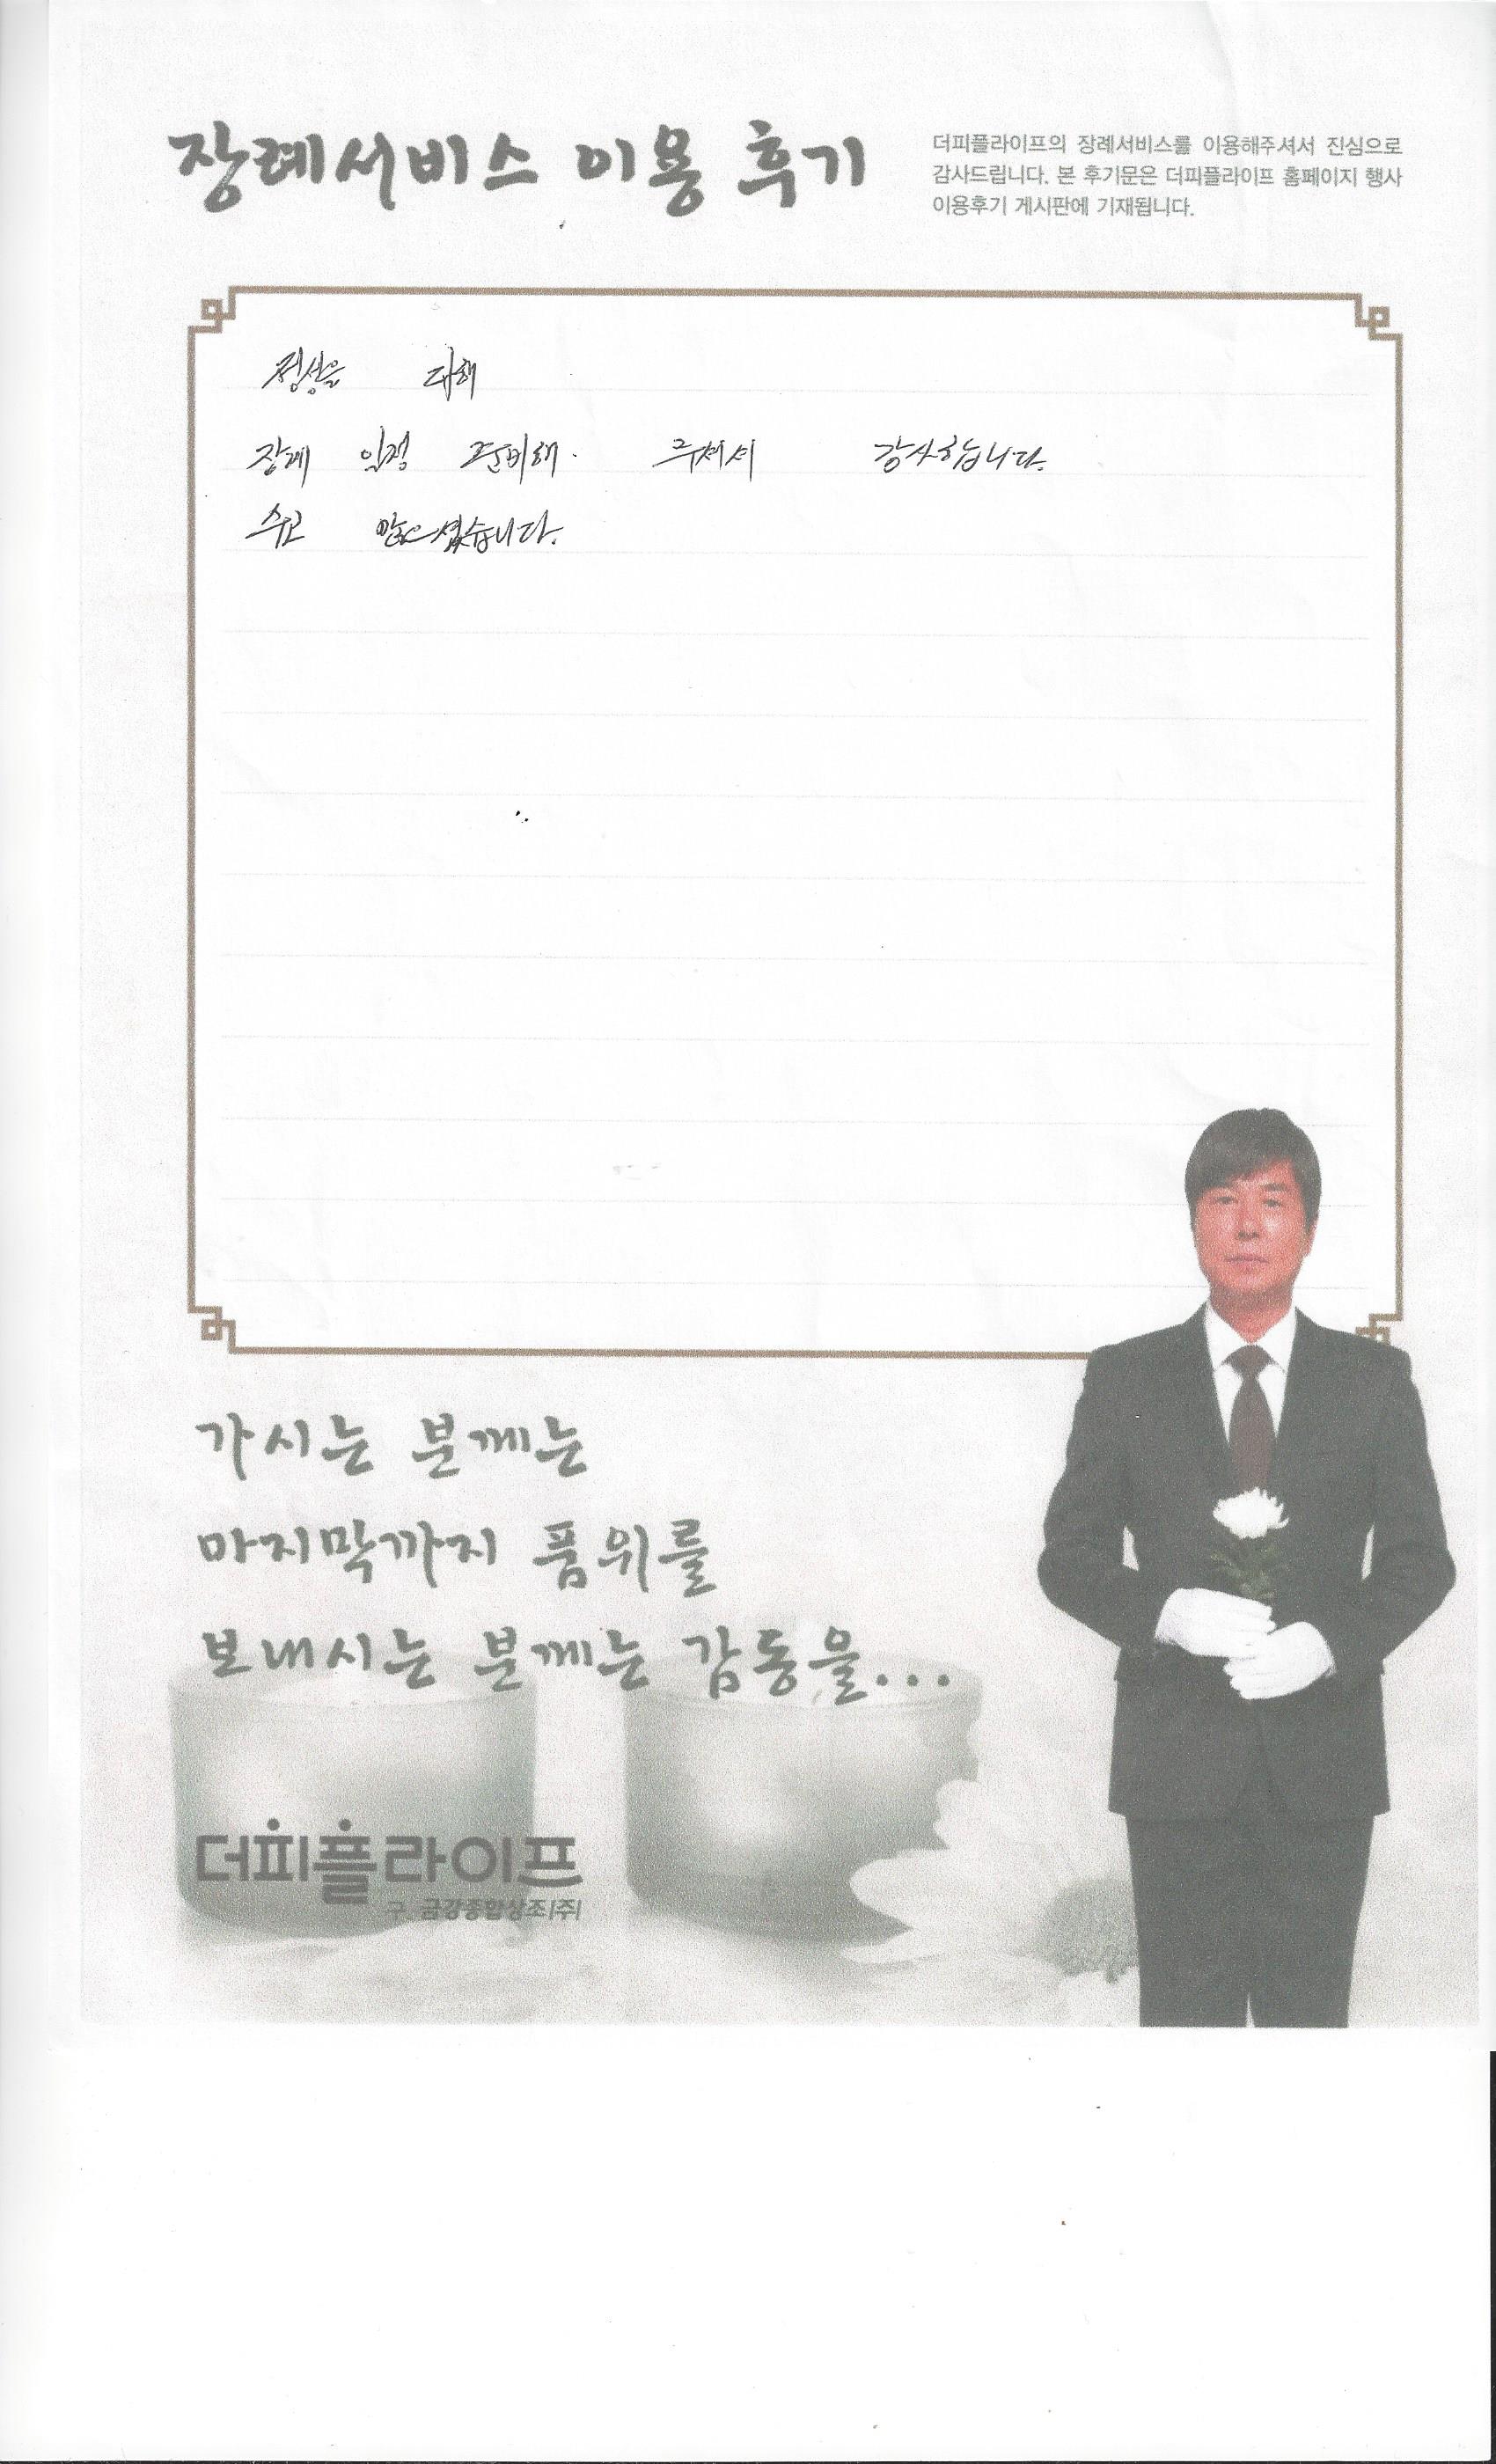 장례서비스 이용 후기
더피플라이프의 장례서비스를 이용해주셔서 진심으로
감사드립니다. 본 후기문은 더피플라이프 홈페이지 행사
이용후기 게시판에 기재됩니다.
정성을 다해
장례 일정 준비해 주셔서 감사합니다.
수고 많으셨습니다.
가시는 분께는
마지막까지 품위를
보내시는 분께는 감동을...
더피플라이프
구 금강종합상조(주)